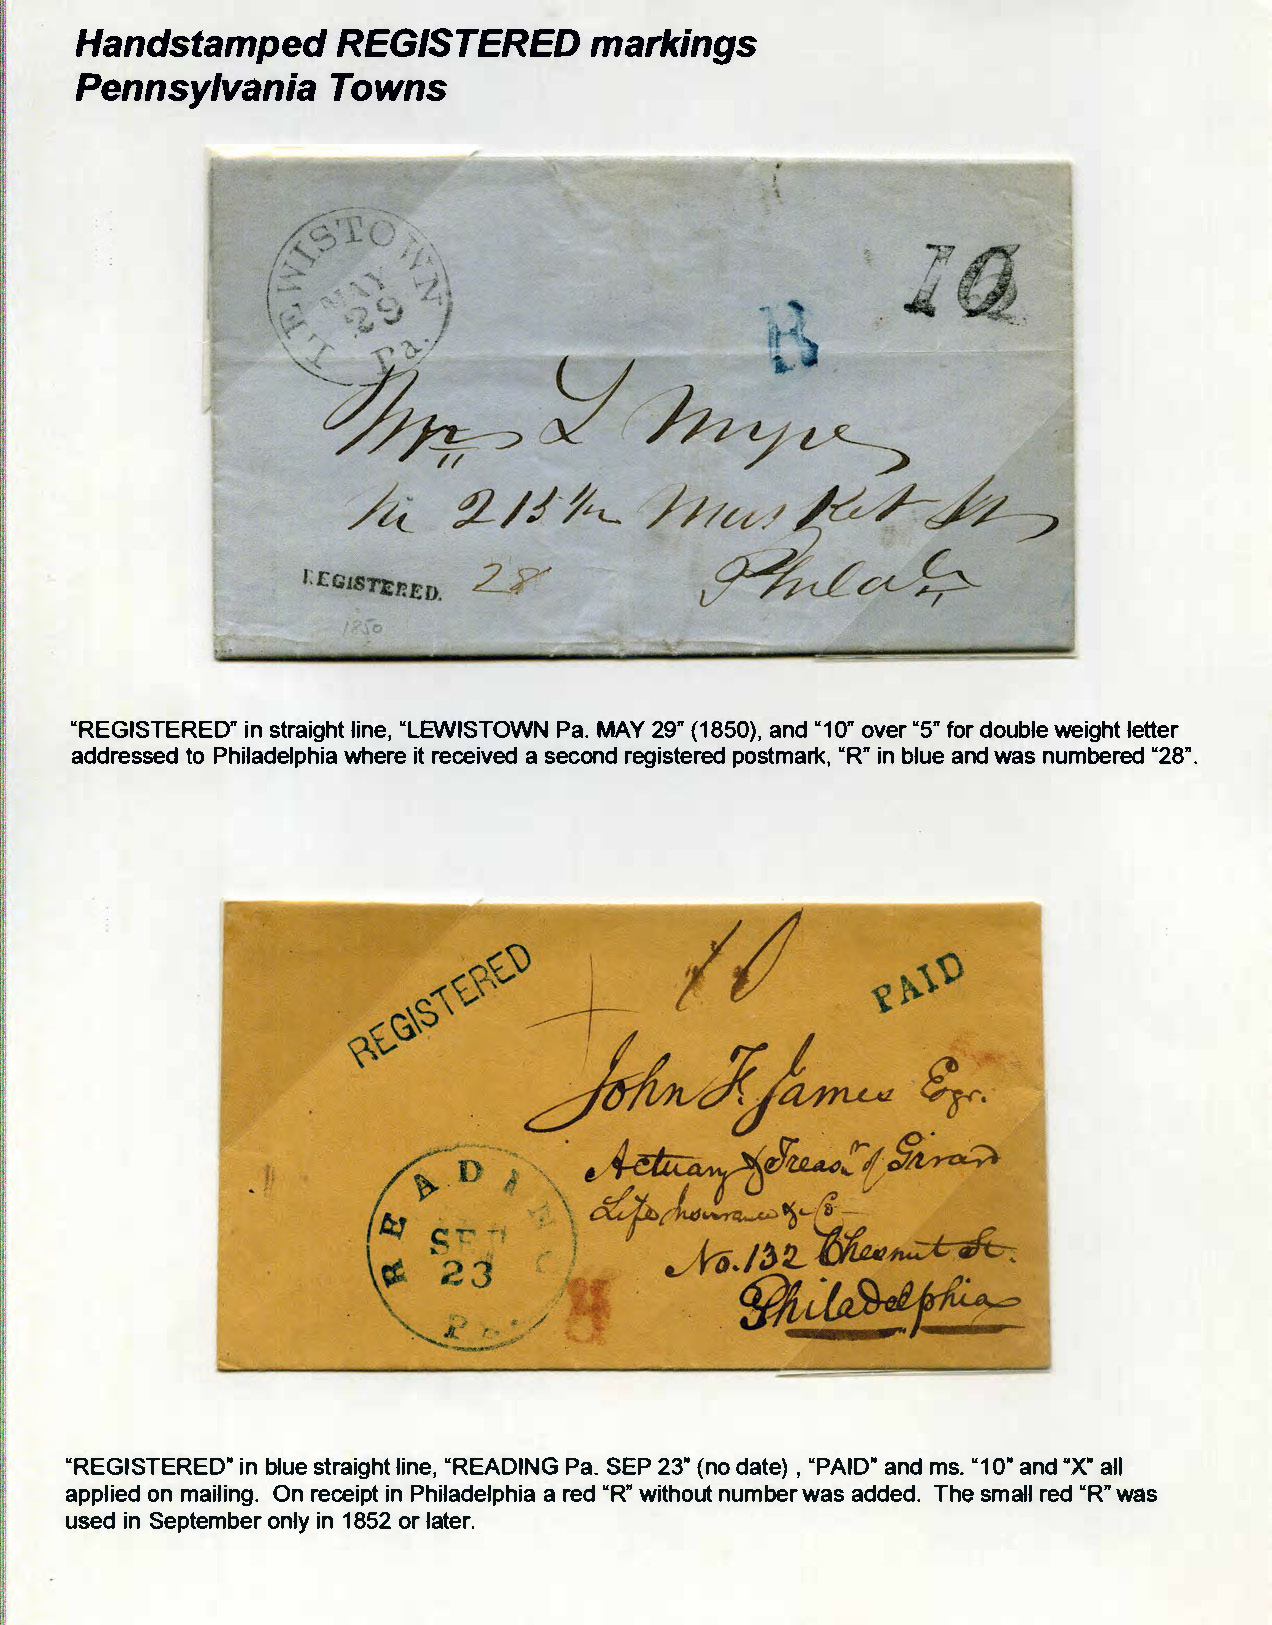 Handstamped REGISTERED markings
Pennsylvania Towns
LEWISTOWN
MAY
29
Pa.
10
R
Mrs L Myer
No 213½ Market St
REGISTERED. 28
Philada
1850
“REGISTERED” in straight line, “LEWISTOWN Pa. MAY 29” (1850), and “10” over “5” for double weight letter
addressed to Philadelphia where it received a second registered postmark, “R” in blue and was numbered “28”.
REGISTERED
10
PAID
John F. James Esqr.
Actuary & Treasr of Girard
Life Insurance &c Co
No. 132 Chesnut St.
Philadelphia
READING
SEP
23
Pa.
R
“REGISTERED” in blue straight line, “READING Pa. SEP 23” (no date) , “PAID” and ms. “10” and “X” all
applied on mailing. On receipt in Philadelphia a red “R” without number was added. The small red “R” was
used in September only in 1852 or later.